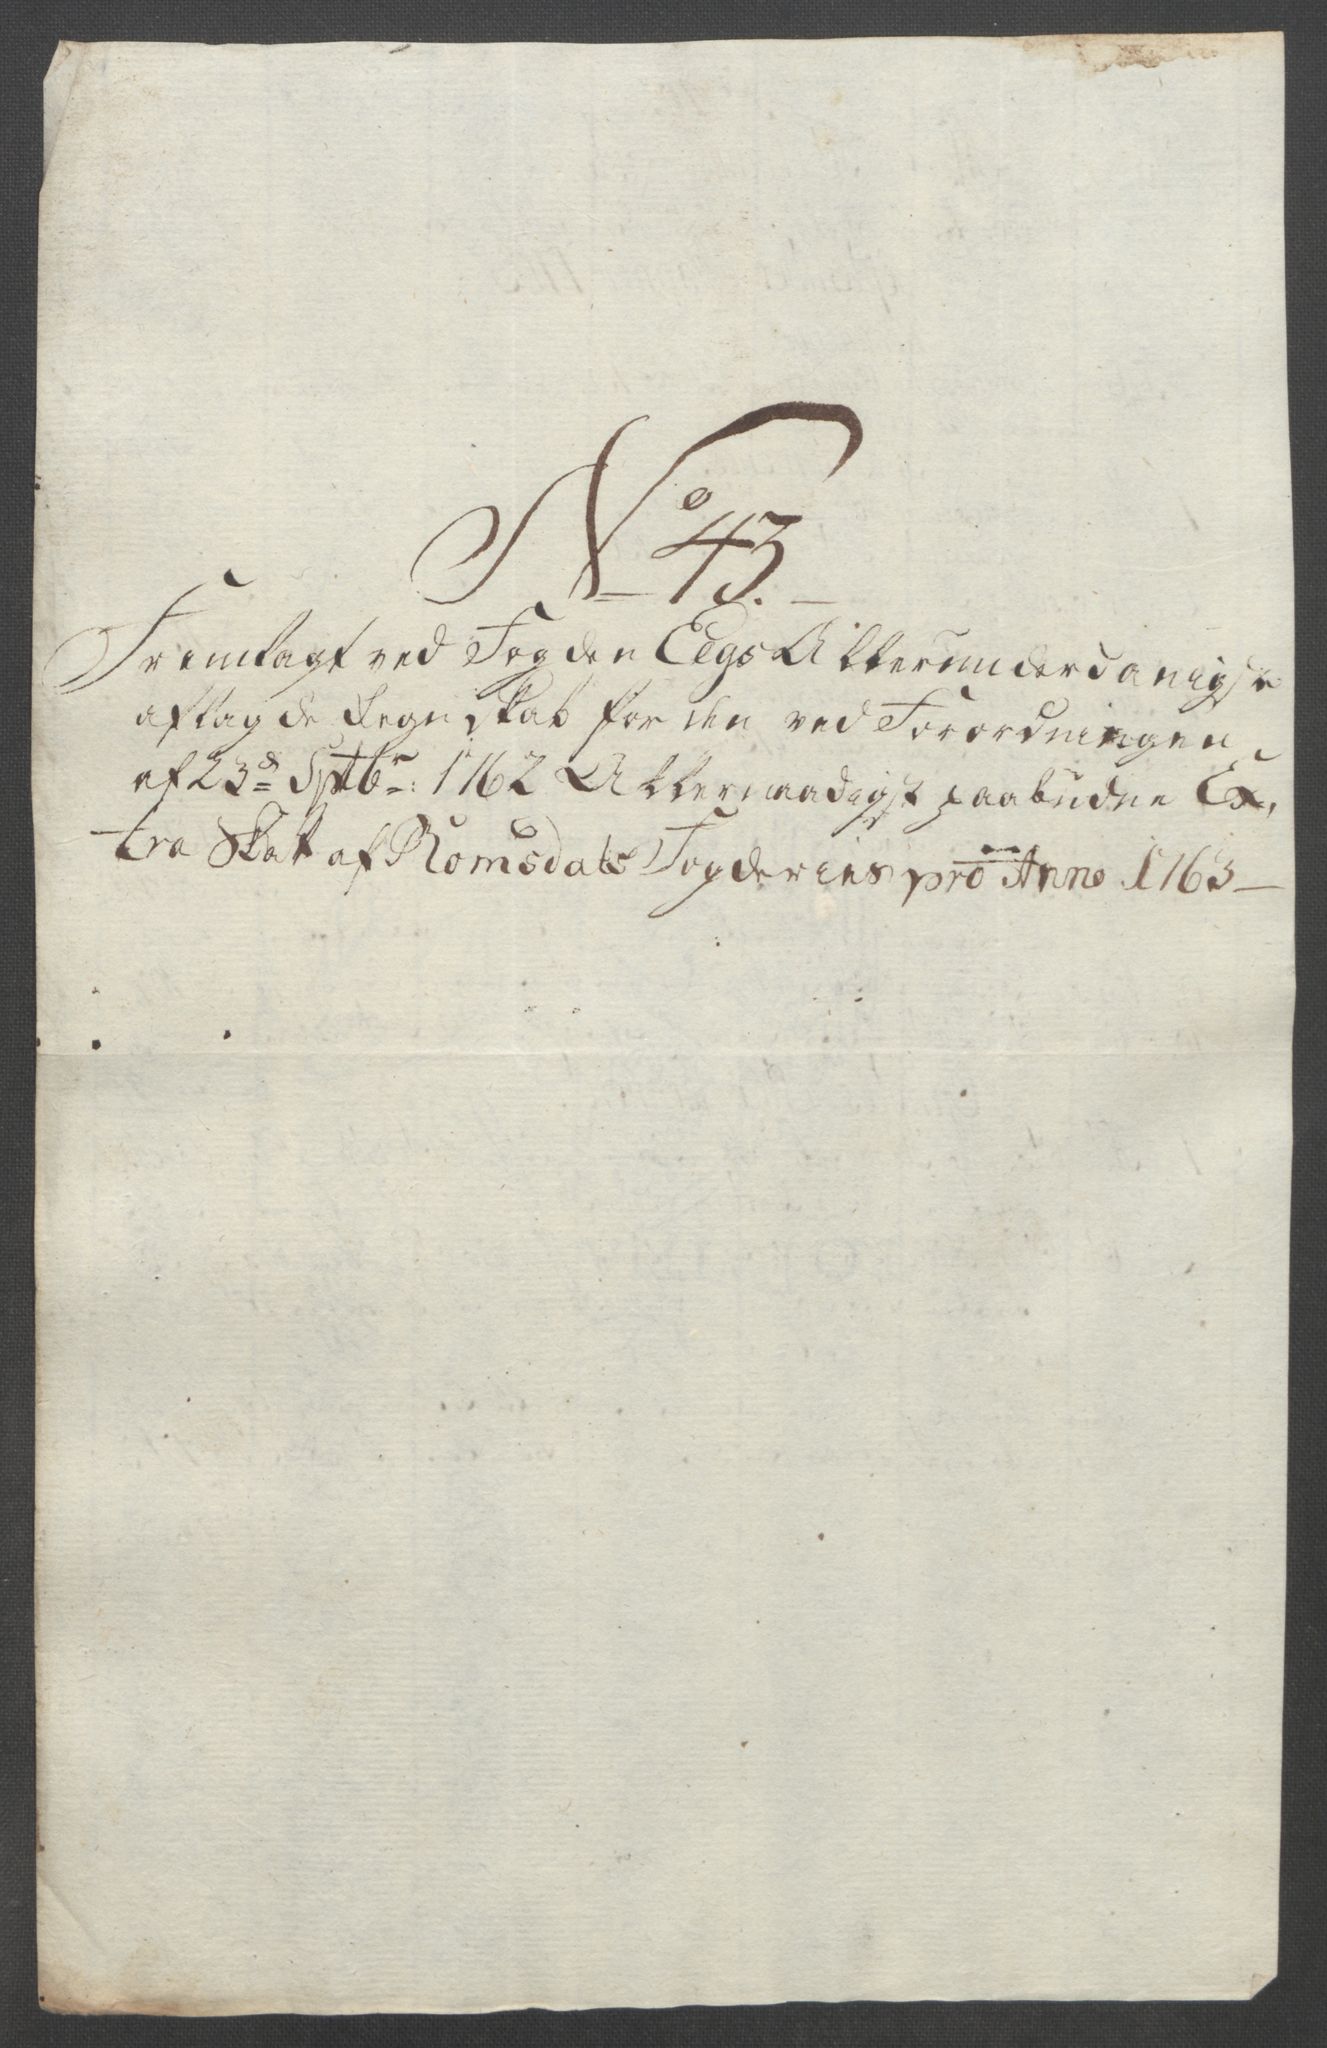 No 43.
Fremlagt ved Fogden Eegs Allerunderdanigst
aflagde Regnskab for den ved Forordningen
af 23de Sptbr: 1762 Allernaadigst paabudne Ex,
tra Skat af Romsdals Fogderies pro Anno 1763